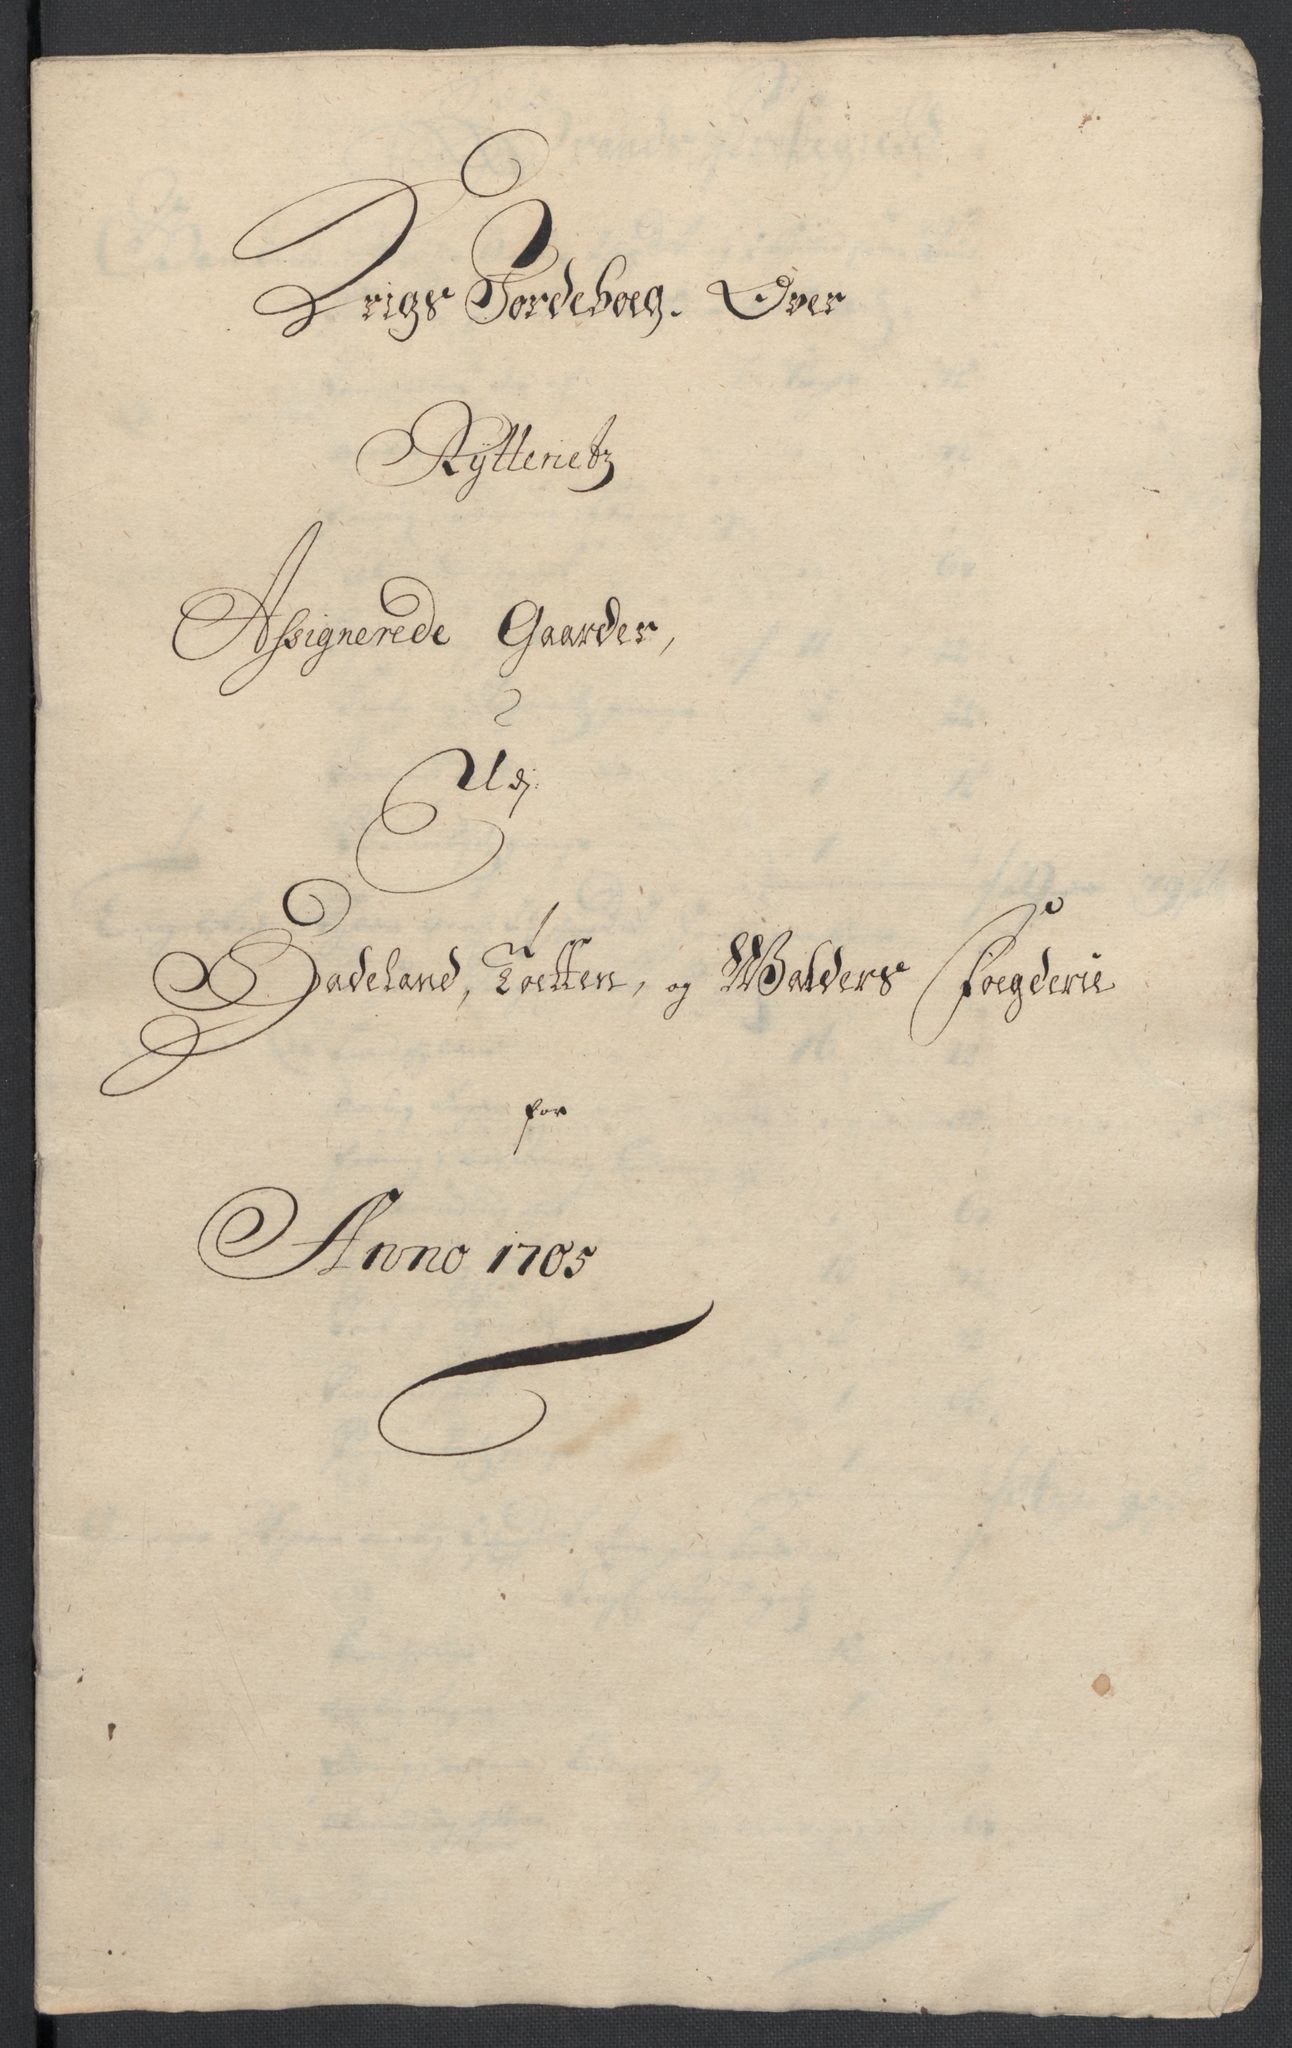 Krigs Jordeboeg. Over
Rÿtterietz
Assignerede Gaarder,
Udj
Hadeland, Toetten, og Walders Foegderie
for
Anno 1705